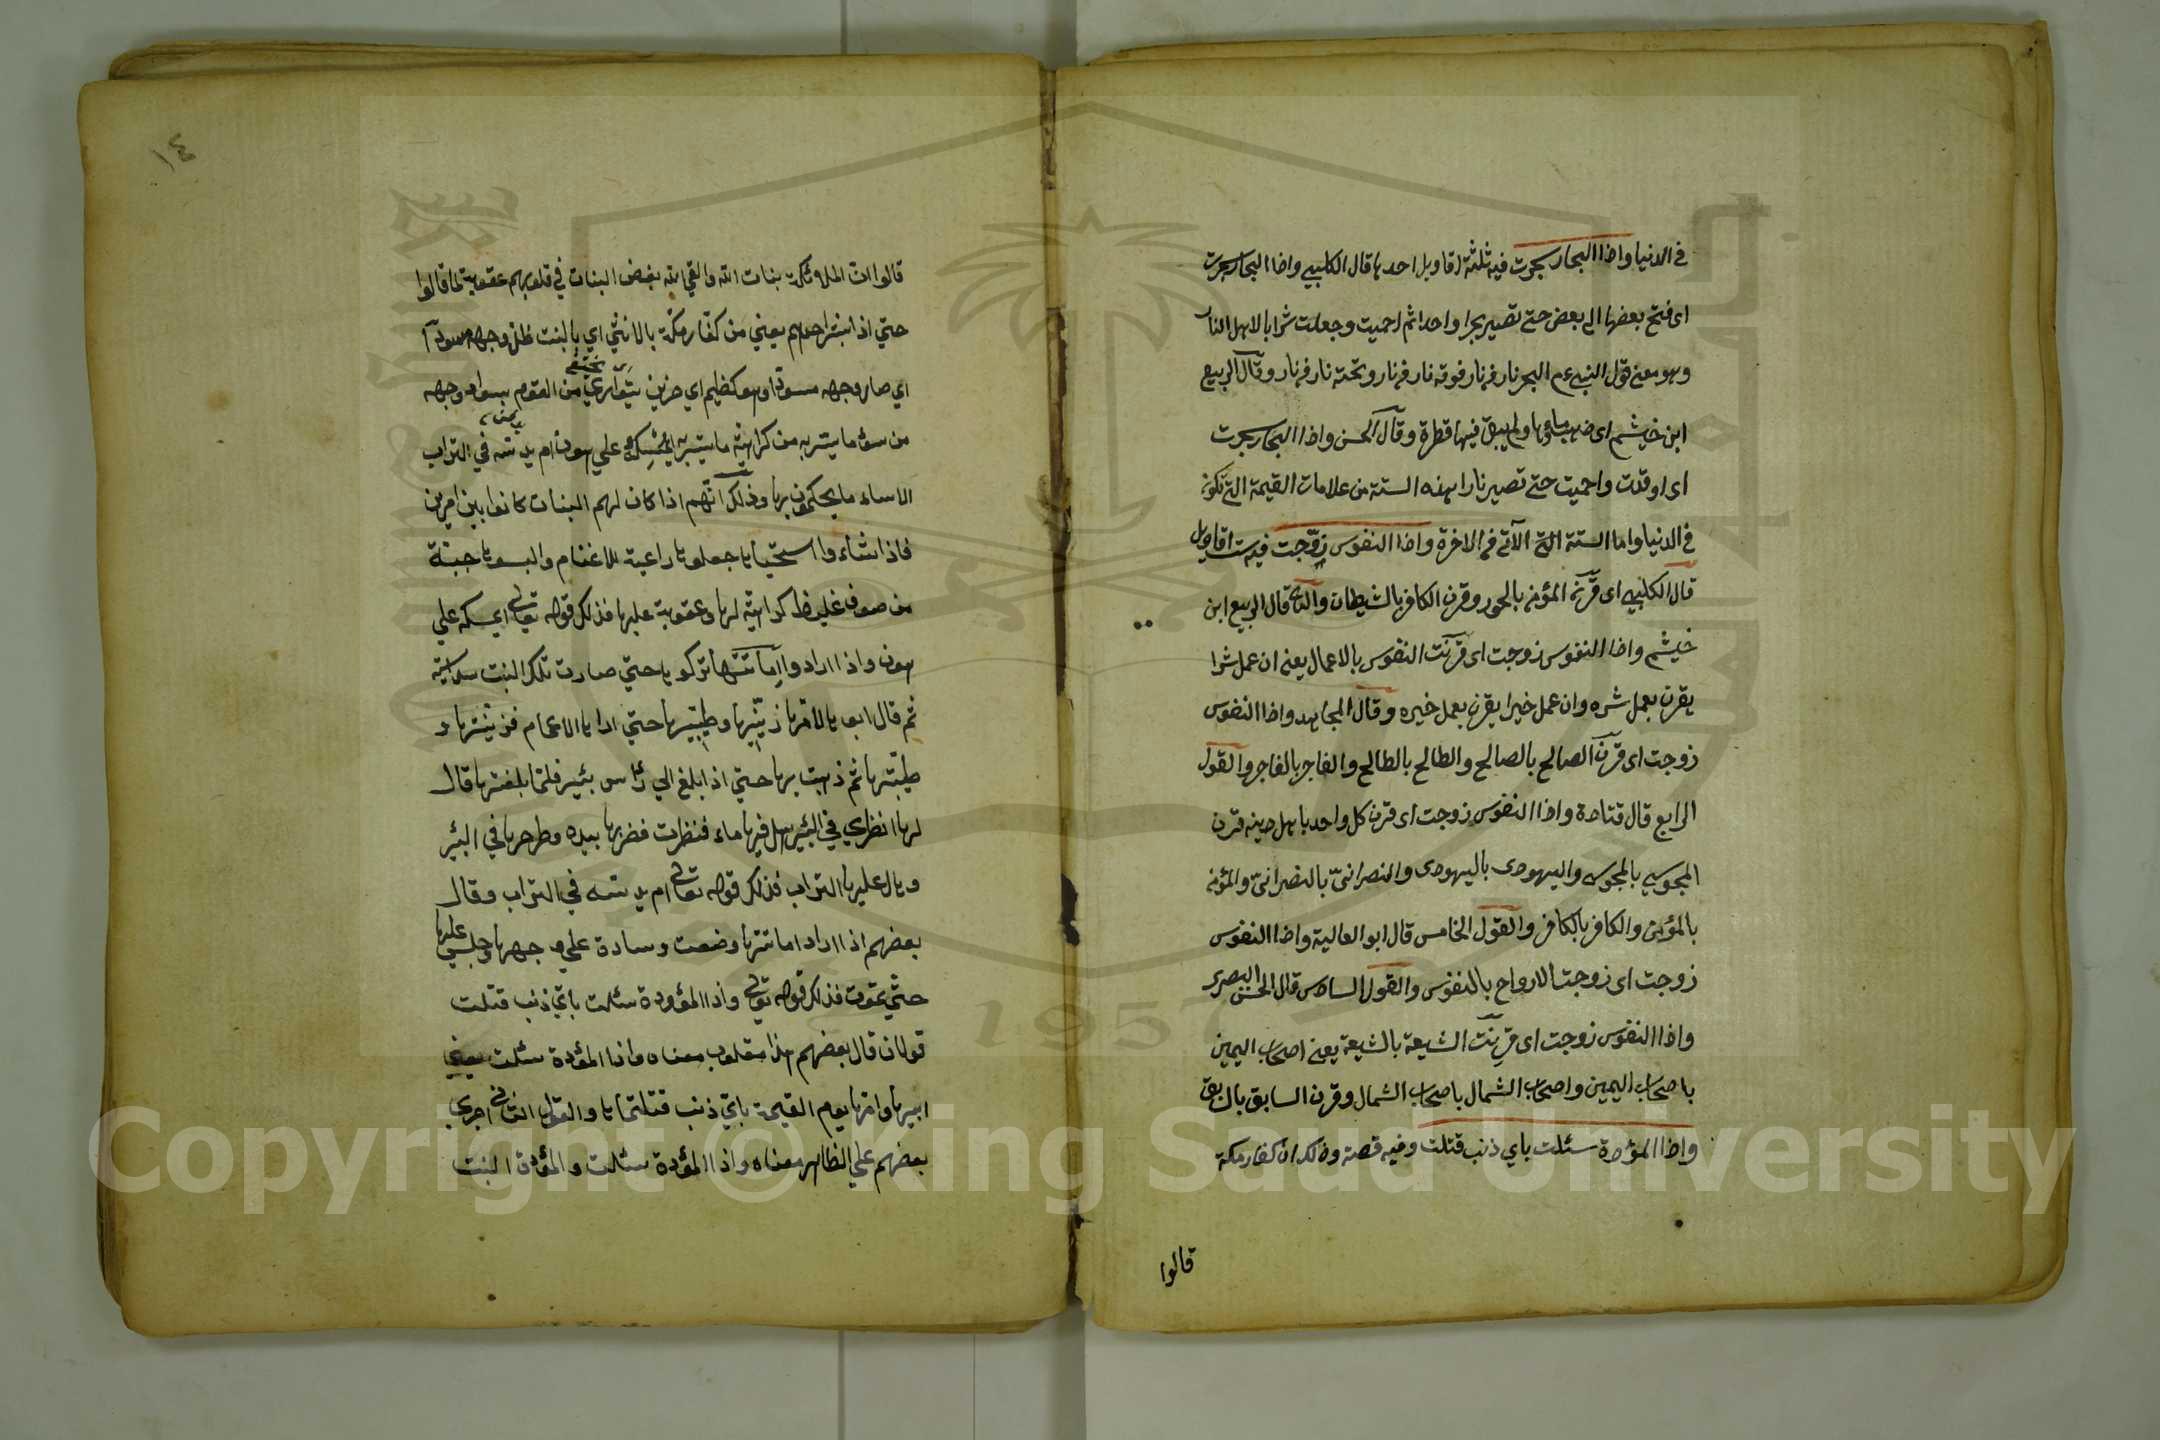 في الدنيا واذا البحار سجرت فيه ثلثة اقاويل احدها قال الكلبي واذا البحار سجرت
اى فتح بعضها الى بعض حتى تصير بحرا واحدا ثم احميت وجعلت شرابا لاهل النار
وهو معنى قول النبي عم البحر نار في نار فوقه نار في نار وتحته نار في نار وقال الربيع
ابن خيشم اى ذهب ماؤها ولم يبق فيها قطرة وقال الحسن واذا البحار سجرت
اى اوقدت واحميت حتى تصير نارا بهذه الستة من علامات القيمة التى تكون
في الدنيا واما الستة التى الآتى في الاخرة واذا النفوس زوّجت فيه ست اقاويل
قال الكلبي اى قرن المؤمن بالحور وقرن الكافر بالشيطان والثانى قال الربيع ابن
خيشم واذا النفوس زوجت اى قرنت النفوس بالاعمال يعنى ان عمل شرا
يقرن بعمل شره وان عمل خيرا يقرن بعمل خيره وقال المجاهد واذا النفوس
زوجت اى قرن الصالح بالصالح والطالح بالطالح والفاجر بالفاجر والقول
الرابع قال قتادة واذا النفوس زوجت اى قرن كل واحد باهل دينه قرن
المجوسي بالمجوسى واليهودى باليهودى والنصرانىّ بالنصرانىّ والمؤمن
بالمؤمن والكافر بالكافر والقول الخامس قال ابو العالية واذا النفوس
زوجت اى زوجت الارواح بالنفوس والقول السادس قال الحسن البصرى
واذا النفوس زوجت اى قرنت الشيعة بالشيعة يعنى اصحاب اليمين
باصحاب اليمين واصحاب الشمال باصحاب الشمال وقرن السابق بالسابق
واذا المؤدة سئلت باي ذنب قتلت وفيه قصة وذلك ان كفار مكة
قالوا
١٤
قالوا ان الملائكة بنات الله والقي الله بغض البنات في قلوبهم عقوبة لما قالوا
حتي اذا ابشر احدهم يعني من كفار مكة بالانثي اي بالبنت ظل وجهه مسودا
اي صار وجهه مسودّا وهو كظيم اي حزين يتوارى من القوم بسواد وجهه
من سوء ما بشر به من كراهية ما بشر به ايمسكه علي هون ام يدسّه في التراب
الا ساء ما يحكمون بها وذلك انّهم اذا كان لهم البنات كانوا بين امرين
فاذا شاء وا استحيايا جعلوها راعية للاغنام والبسوها جبّة
من صوف غليظ كراهية لها وعقوبة عليها فذلك قوله تعالى ايمسكه علي
هون واذا ارادوا اِماتتها تركوها حتي صارت تلك البنت سداسية
ثم قال ابوها لامّها زيّنيها وطيّبيها حتي اراها الاعمام فزيّنتها و
طيّبتها ثم ذهبت بها حتي اذا بلغ الي رأس بئير فلمّا بلغتها قال
لها انظري في البئير هل فيها ماء فنظرت فضربها بيده وطرحها في البئير
وهال عليها التراب فذلك قوله تعالى ام يدسّه في التراب وقال
بعضهم اذا ارادا ماتتها وضعت وسادة علي وجهها وجلس عليها
حتّي يموت فذلك قوله تعالى واذا المؤودة سئلت باي ذنب قتلت
قولان قال بعضهم هذا مقلوب معناه واذا المؤدة سئلت يعني
ابيها وامها يوم القيمة باي ذنب قتلتماها والقول الثانى اجري
بعضهم علي الظاهر معناه واذا المؤدة سئلت والمؤدة البنت
1957
Copyright © King Saud University